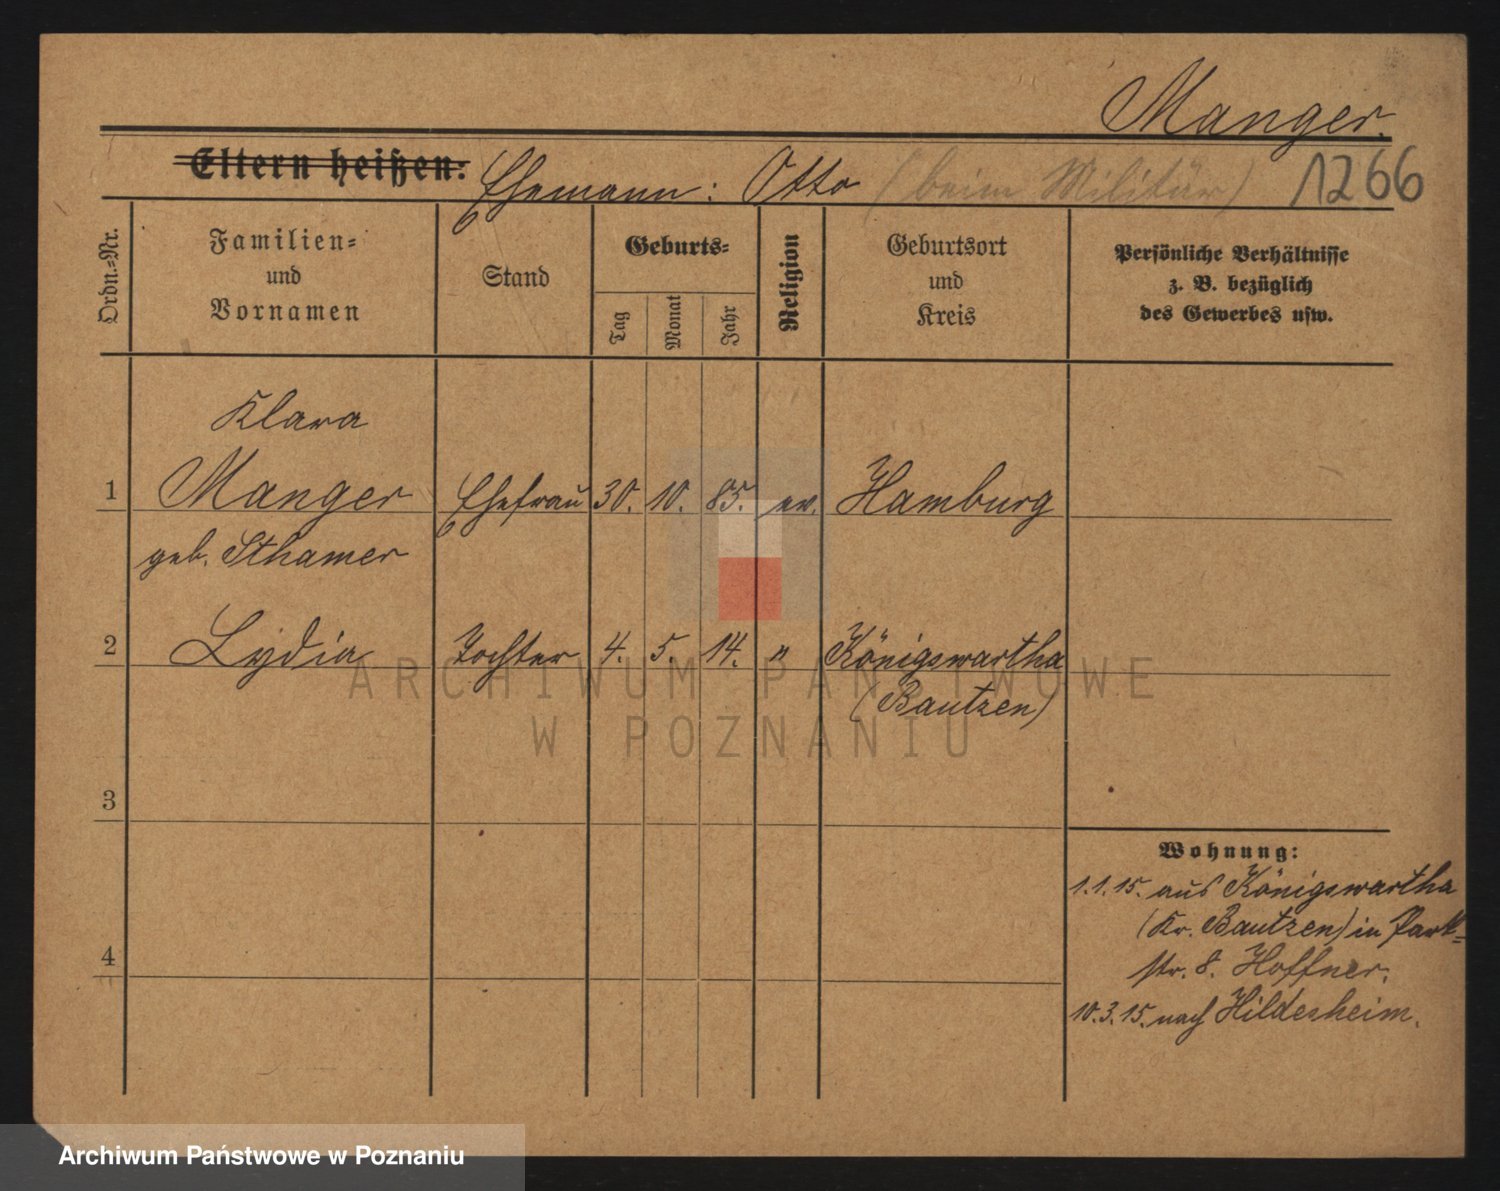 Manger.
Eltern heißen: Ehemann: Otto (beim Militär) 1266
Ordn.-Nr.
Familien-
und
Vornamen
Stand
Geburts-
Tag
Monat
Jahr
Religion
Geburtsort
und
Kreis
Persönliche Verhältnisse
z. B. bezüglich
des Gewerbes usw.
Klara
1 Manger Ehefrau 30. 10. 85. ev. Hamburg
geb. Sthamer
2 Lydia Tochter 4. 5. 14. " Königswartha
(Bautzen)
3
4
Wohnung:
1.1.15. aus Königswartha
(Kr. Bautzen) in Park-
str. 8. Hoffner.
10.3.15. nach Hildesheim.
ARCHIWUM PAŃSTWOWE
W POZNANIU
Archiwum Państwowe w Poznaniu